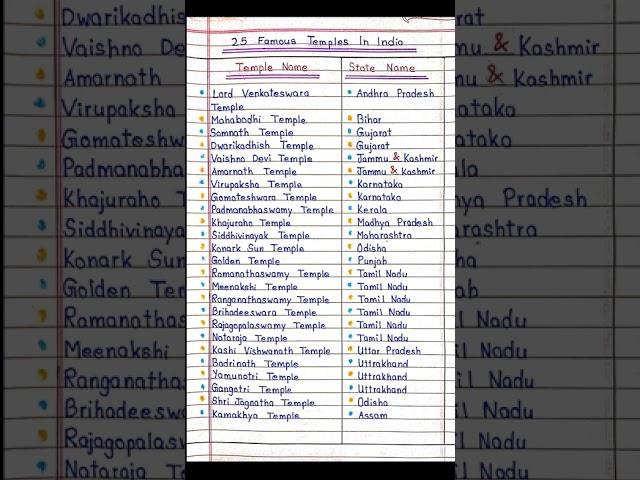 25 Famous Temples In India
Temple Name State Name
Lord Venkateswara Andhra Pradesh
Temple
Mahabodhi Temple Bihar
Somnath Temple Gujarat
Dwarikadhish Temple Gujarat
Vaishno Devi Temple Jammu & Kashmir
Amarnath Temple Jammu & Kashmir
Virupaksha Temple Karnataka
Gomateshwara Temple Karnataka
Padmanabhaswamy Temple Kerala
Khajuraho Temple Madhya Pradesh
Siddhivinayak Temple Maharashtra
Konark Sun Temple Odisha
Golden Temple Punjab
Ramanathaswamy Temple Tamil Nadu
Meenakshi Temple Tamil Nadu
Ranganathaswamy Temple Tamil Nadu
Brihadeeswara Temple Tamil Nadu
Rajagopalaswamy Temple Tamil Nadu
Nataraja Temple Tamil Nadu
Kashi Vishwanath Temple Uttar Pradesh
Badrinath Temple Uttrakhand
Yamunotri Temple Uttrakhand
Gangatri Temple Uttrakhand
Shri Jagnatha Temple Odisha
Kamakhya Temple Assam
Dwarikadhis
Vaishno Devi
Amarnath
Virupaksha
Gomateshw
Padmanabha
Khajuraho
Siddhivinaya
Konark Sun
Golden Tem
Ramanathas
Meenakshi
Ranganathas
Brihadeesw
Rajagopalas
Nataraja Te
u & Kashmir
u & Kashmir
ataka
ataka
a
ya Pradesh
rashtra
a
ab
Nadu
Nadu
Nadu
Nadu
Nadu
Nadu